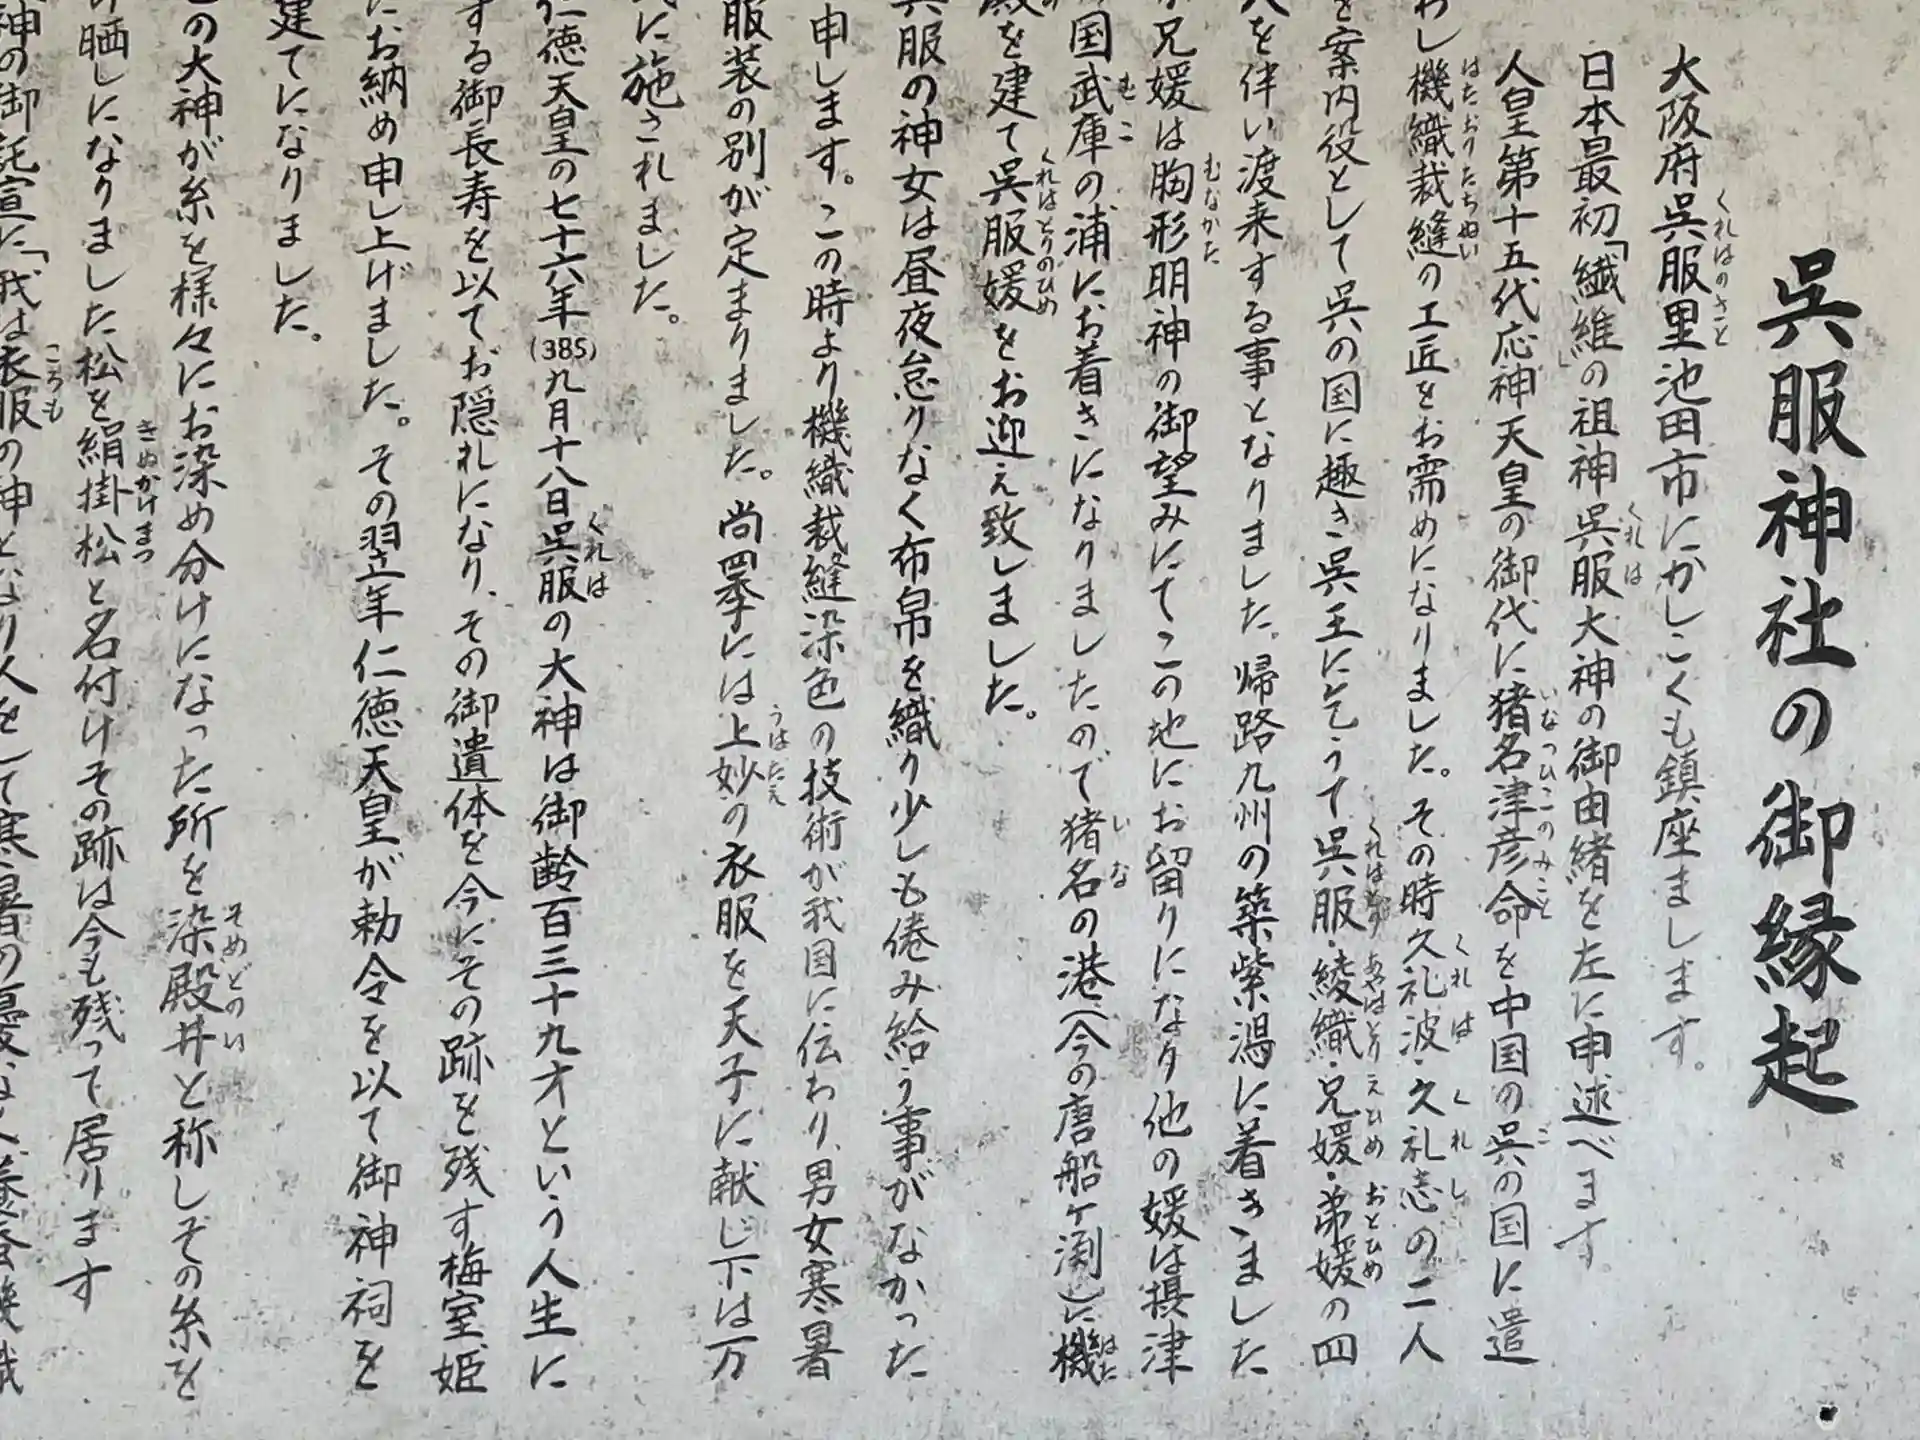 呉服神社の御縁起
大阪府呉服里池田市にかしこくも鎮座まします。
くれはのさと
日本最初「繊維」の祖神呉服大神の御由緒を左に申述べます
くれは
人皇第十五代応神天皇の御代に猪名津彦命を中国の呉の国に遣
いなつひこのみこと ご
わし機織裁縫の工匠をお需めになりました。その時久礼波・久礼志の二人
はたおりたちぬい くれは くれし
を案内役として呉の国に趣き呉王に乞うて呉服・綾織・兄媛・弟媛の四
くれはとり あやはとり えひめ おとひめ
人を伴い渡来する事となりました。帰路九州の築紫潟に着きました
兄媛は胸形明神の御望みにてこの地にお留りになり他の媛は摂津
むなかた
国武庫の浦にお着きになりましたので猪名の港(今の唐船ヶ渕)に機
むこ いな はた
殿を建て呉服媛をお迎え致しました。
くれはとりのひめ
呉服の神女は昼夜怠りなく布帛を織り少しも倦み給う事がなかった
申します。この時より機織裁縫染色の技術が我国に伝わり、男女寒暑
服装の別が定まりました。尚四季には上妙の衣服を天子に献じ下は万
うはたえ
に施されました。
仁徳天皇の七十六年(385)九月十八日呉服の大神は御齢百三十九才という人生に
くれは
する御長寿を以てお隠れになり、その御遺体を今にその跡を残す梅室姫
にお納め申し上げました。その翌年仁徳天皇が勅令を以て御神祠を
建てになりました。
の大神が糸を様々にお染め分けになった所を染殿井と称しその糸を
そめどのい
晒しになりました松を絹掛松と名付けその跡は今も残って居ります
きぬかけまつ
神の御託宣に「我は衣服の神となり人をして寒暑の憂
ころも